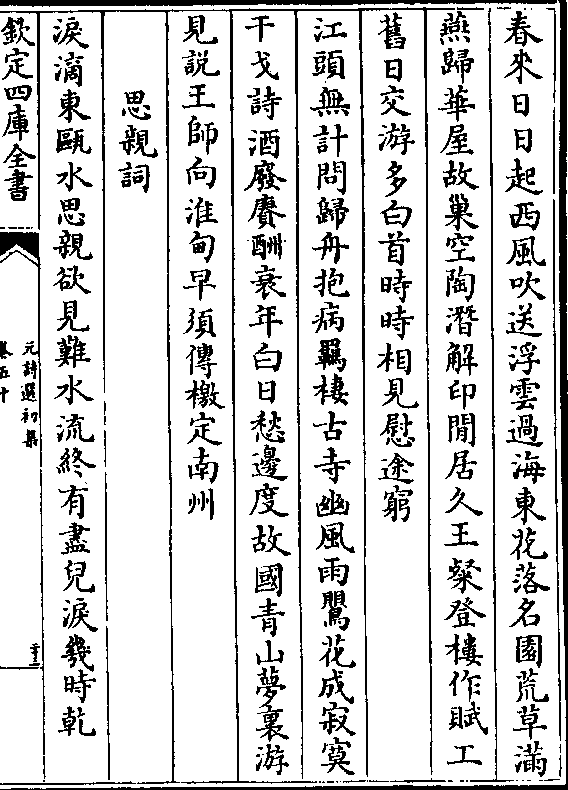 春來日日起西風吹送浮雲過海東花落名園荒草滿
燕歸華屋故巢空陶潛解印閒居久王粲登樓作賦工
舊日交游多白首時時相見慰途窮
江頭無計問歸舟抱病羈棲古寺幽風雨鶯花成寂寞
干戈詩酒廢賡酬衰年白日愁邊度故國青山夢裏游
見説王師向淮甸早須傳檄定南州
思親詞
淚滴東甌水思親欲見難水流終有盡兒淚幾時乾
欽定四庫全書
元詩選初集
卷五十